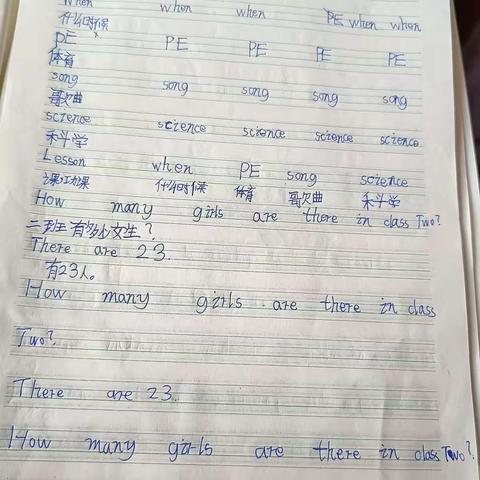 when when when PE when when
什么时候
PE PE PE PE PE
体育
song song song song song
歌曲
science science science science science
科学
Lesson when PE song science
课;功课 什么时候 体育 歌曲 科学
How many girls are there in class Two?
二班有多少女生？
There are 23.
有23人。
How many girls are there in class
Two?
There are 23.
How many girls are there in class Two?